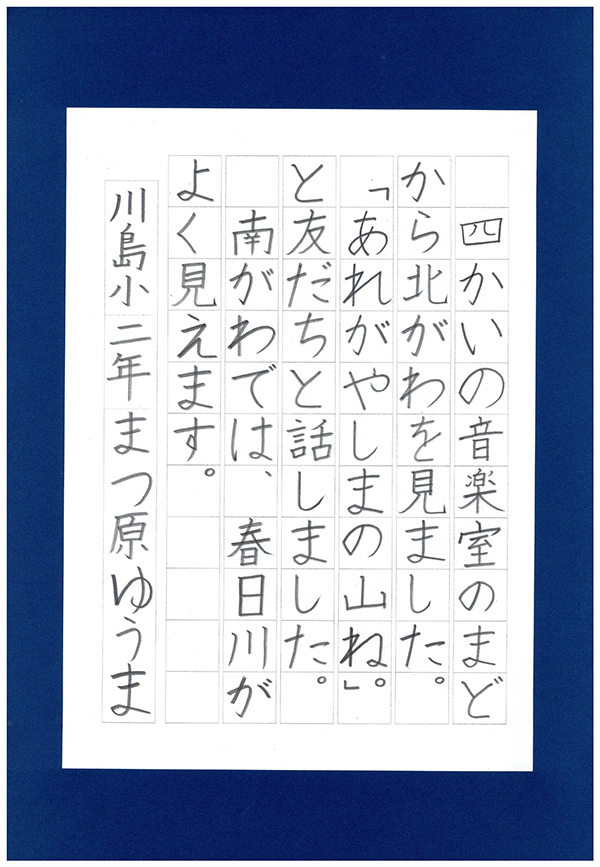 四かいの音楽室のまど
から北がわを見ました。
「あれがやしまの山ね。」
と友だちと話しました。
南がわでは、春日川が
よく見えます。
川島小二年まつ原ゆうま